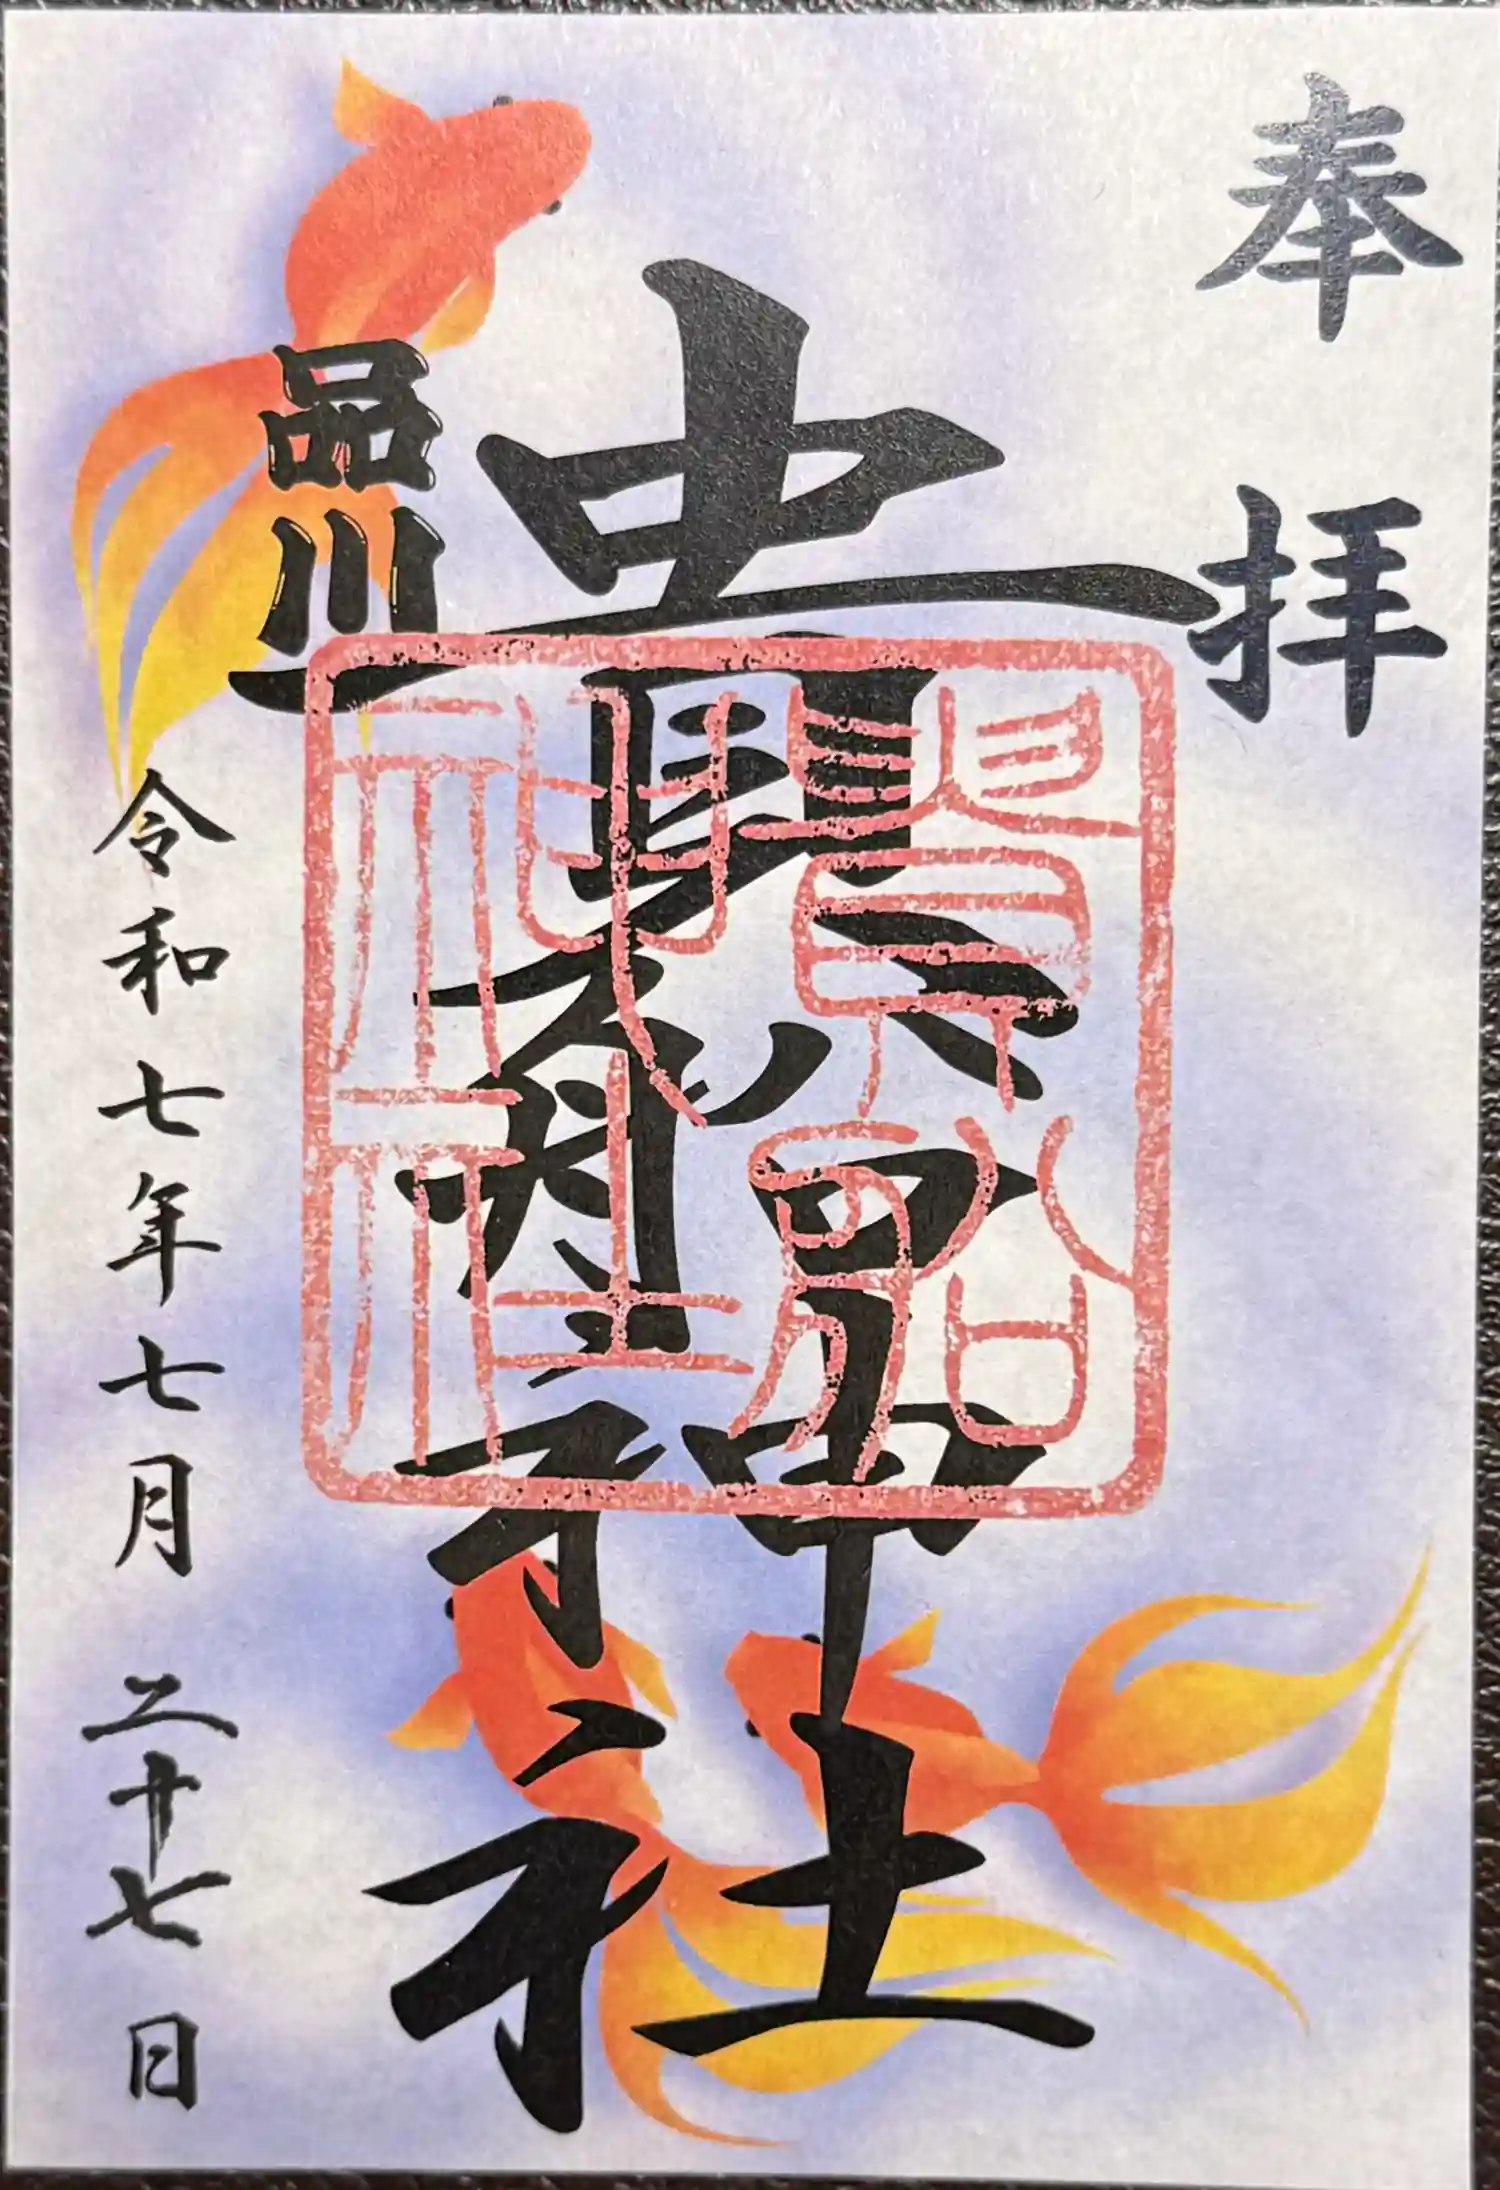 奉拝
貴船神社
貴船
神社
品川
令和七年七月二十七日